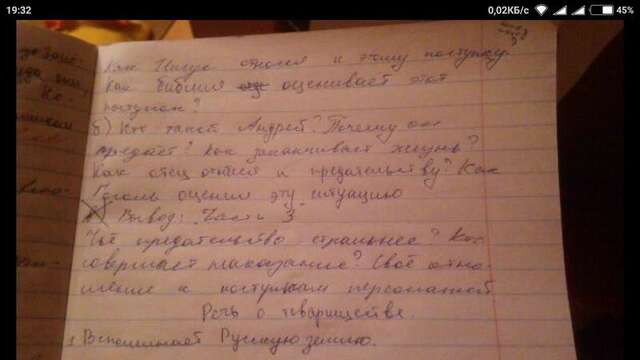 19:32 0,02КБ/с 45%
Как Иисус отнёсся к этому поступку.
Как библия оценивает этот
поступок?
б) Кто такой Андрей? Почему он
предаёт? Как заканчивает жизнь?
Как отец отнёсся к предательству? Как
Гоголь оценил эту ситуацию
Вывод: Часть 3
Чьё предательство страшнее? Кто
совершает наказание? Своё отно-
шение к поступкам персонажей
Речь о товариществе.
1 Вспоминает Русскую землю.